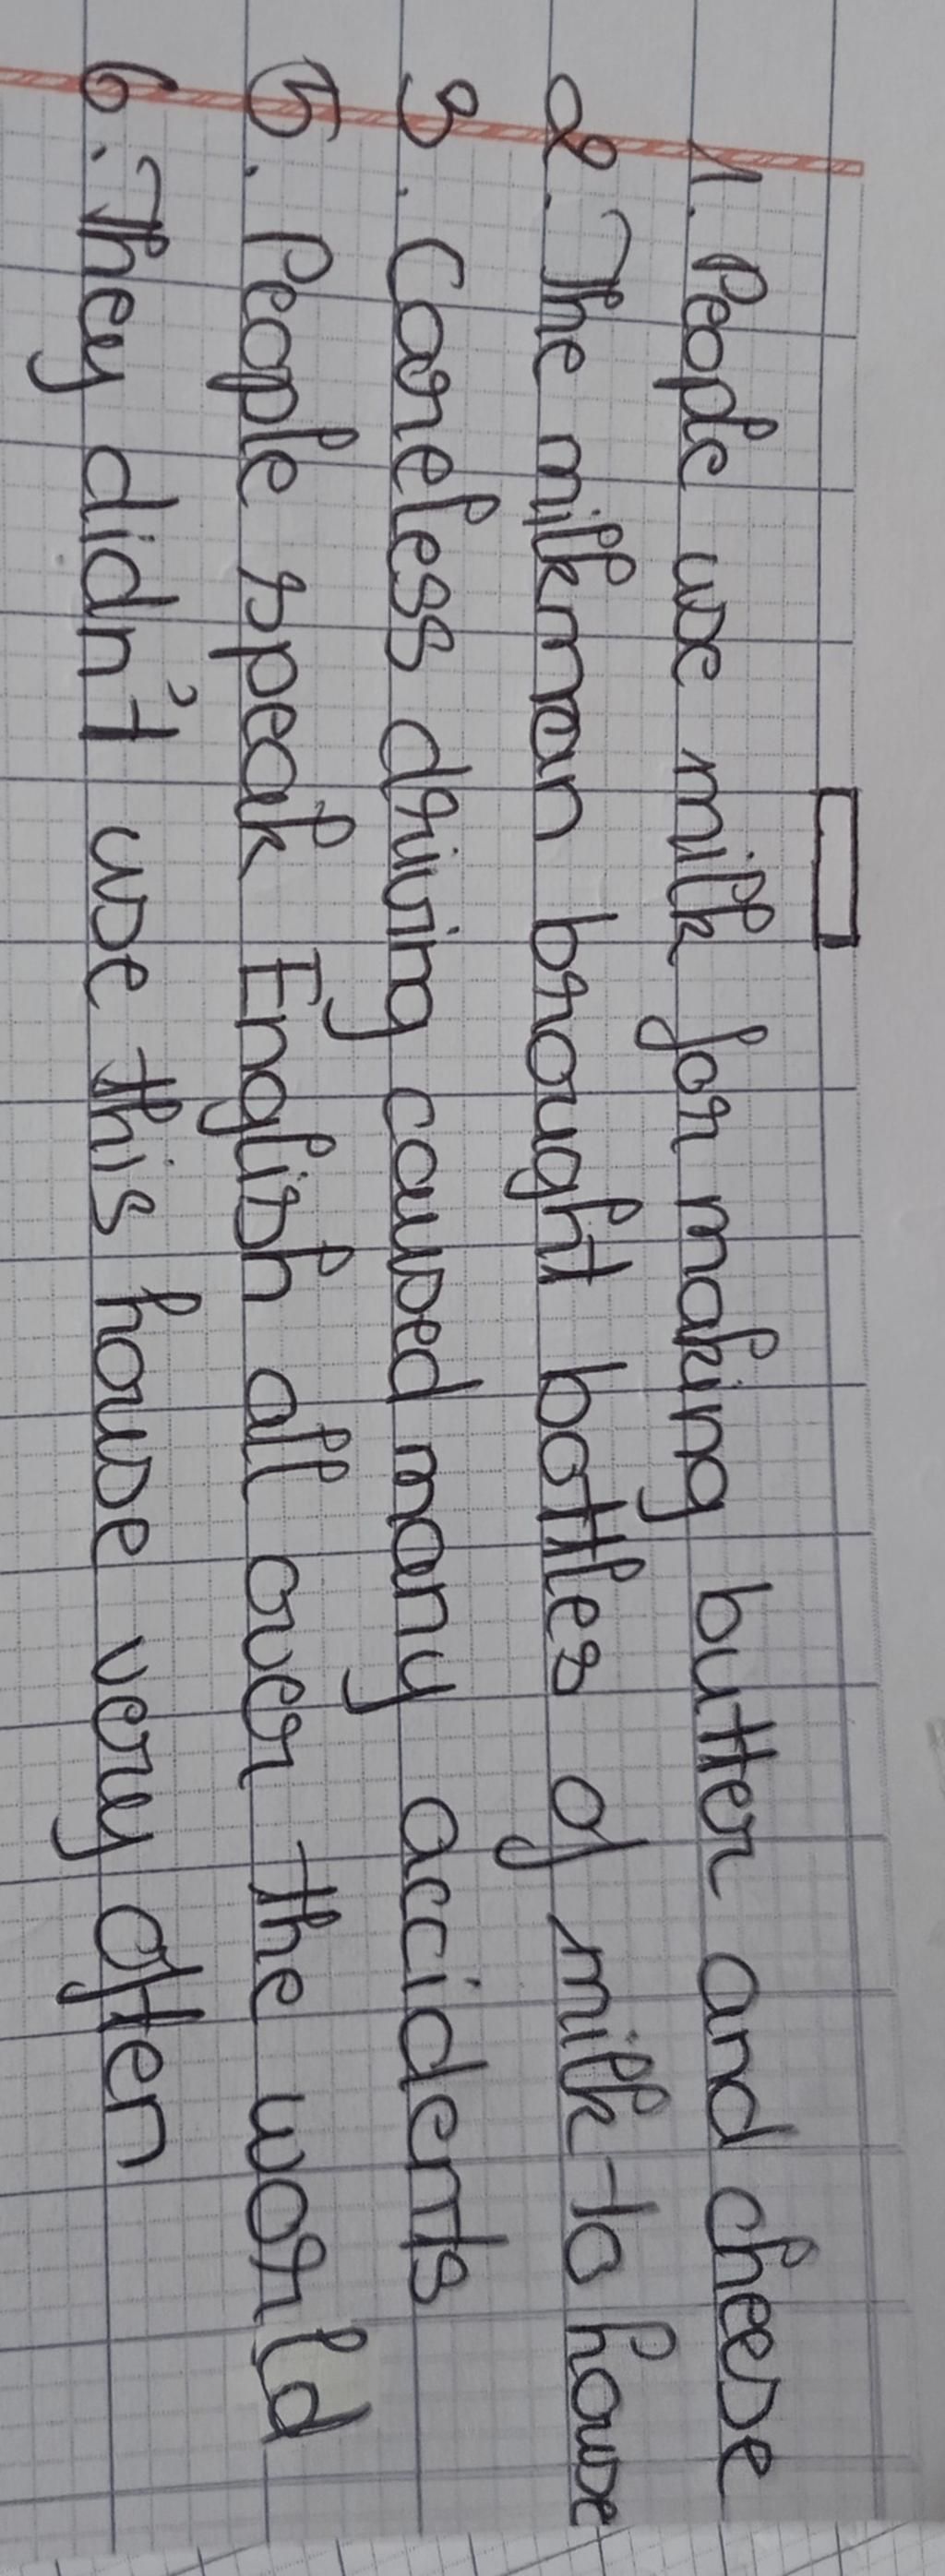 1. People use milk for making butter and cheese
2. The milkman brought bottles of milk to house
3. Careless driving caused many accidents
5. People speak English all over the world
6. They didn't use this house very often